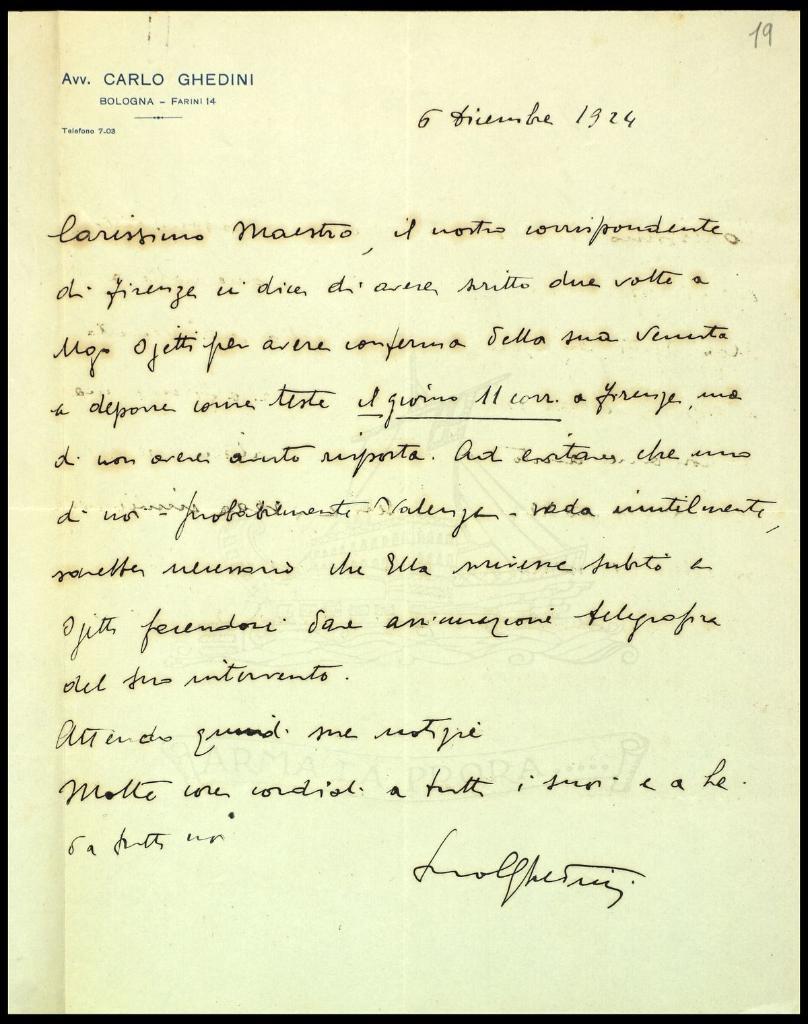 19
Avv. CARLO GHEDINI
BOLOGNA - FARINI 14
Telefono 7-03
6 Dicembre 1924
Carissimo Maestro, il nostro corrispondente
di Firenze ci dice di avere scritto due volte a
Ugo Ojetti per avere conferma della sua venuta
a deporre come teste il giorno 11 corr. a Firenze, ma
di non avere avuto risposta. Ad evitare che uno
di noi - probabilmente Valenza - vada inutilmente,
sarebbe necessario che Ella scrivesse subito a
Ojetti facendosi dare assicurazione telegrafica
del suo intervento.
Attendo quindi sue notizie
Molte cose cordiali a tutti i suoi e a Lei
da tutti noi
Suo CGhedini
ARMA LA PRORA